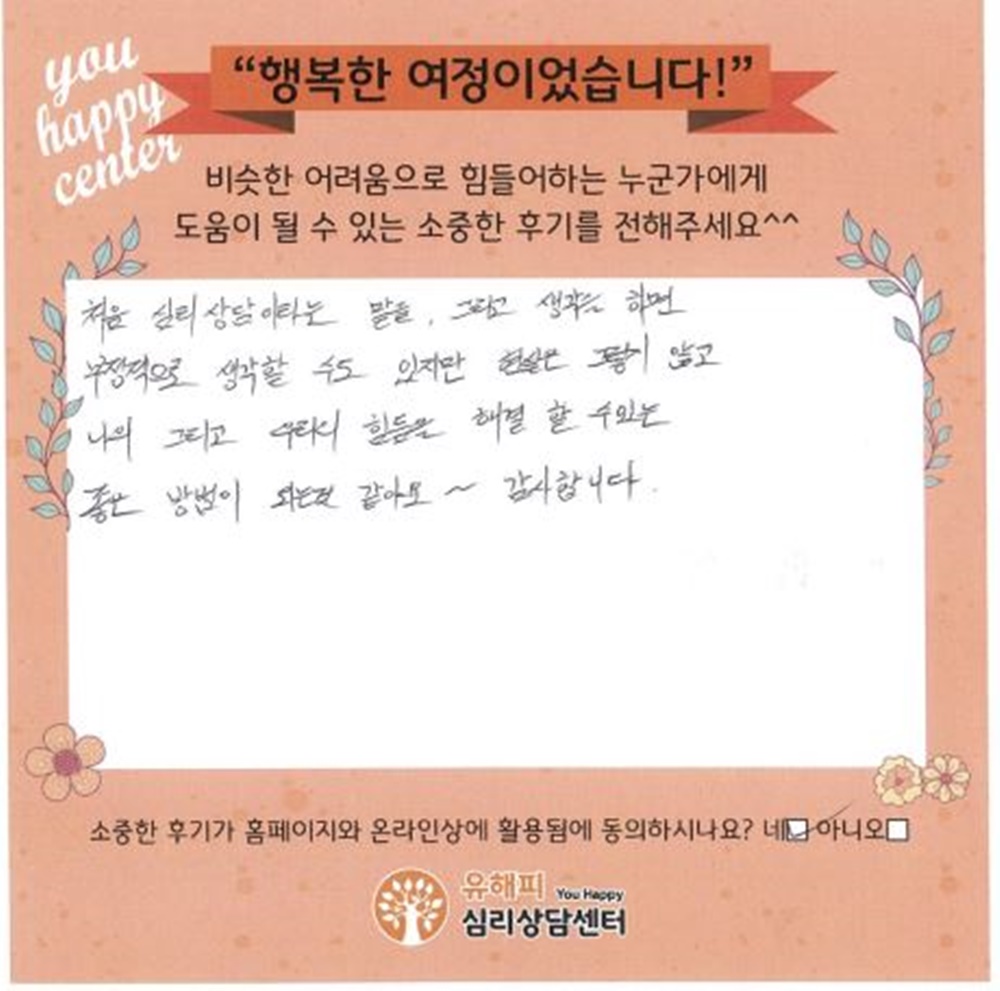 you
happy
center
“행복한 여정이었습니다!”
비슷한 어려움으로 힘들어하는 누군가에게
도움이 될 수 있는 소중한 후기를 전해주세요^^
처음 심리상담이라는 말들, 그리고 생각은 하면
부정적으로 생각할 수도 있지만 현실은 그렇기 않고
나의 그리고 우리의 힘듦을 해결 할 수있는
좋은 방법이 되는것 같아요 ~ 감사합니다.
소중한 후기가 홈페이지와 온라인상에 활용됨에 동의하시나요? 네 아니오
유해피 You Happy
심리상담센터